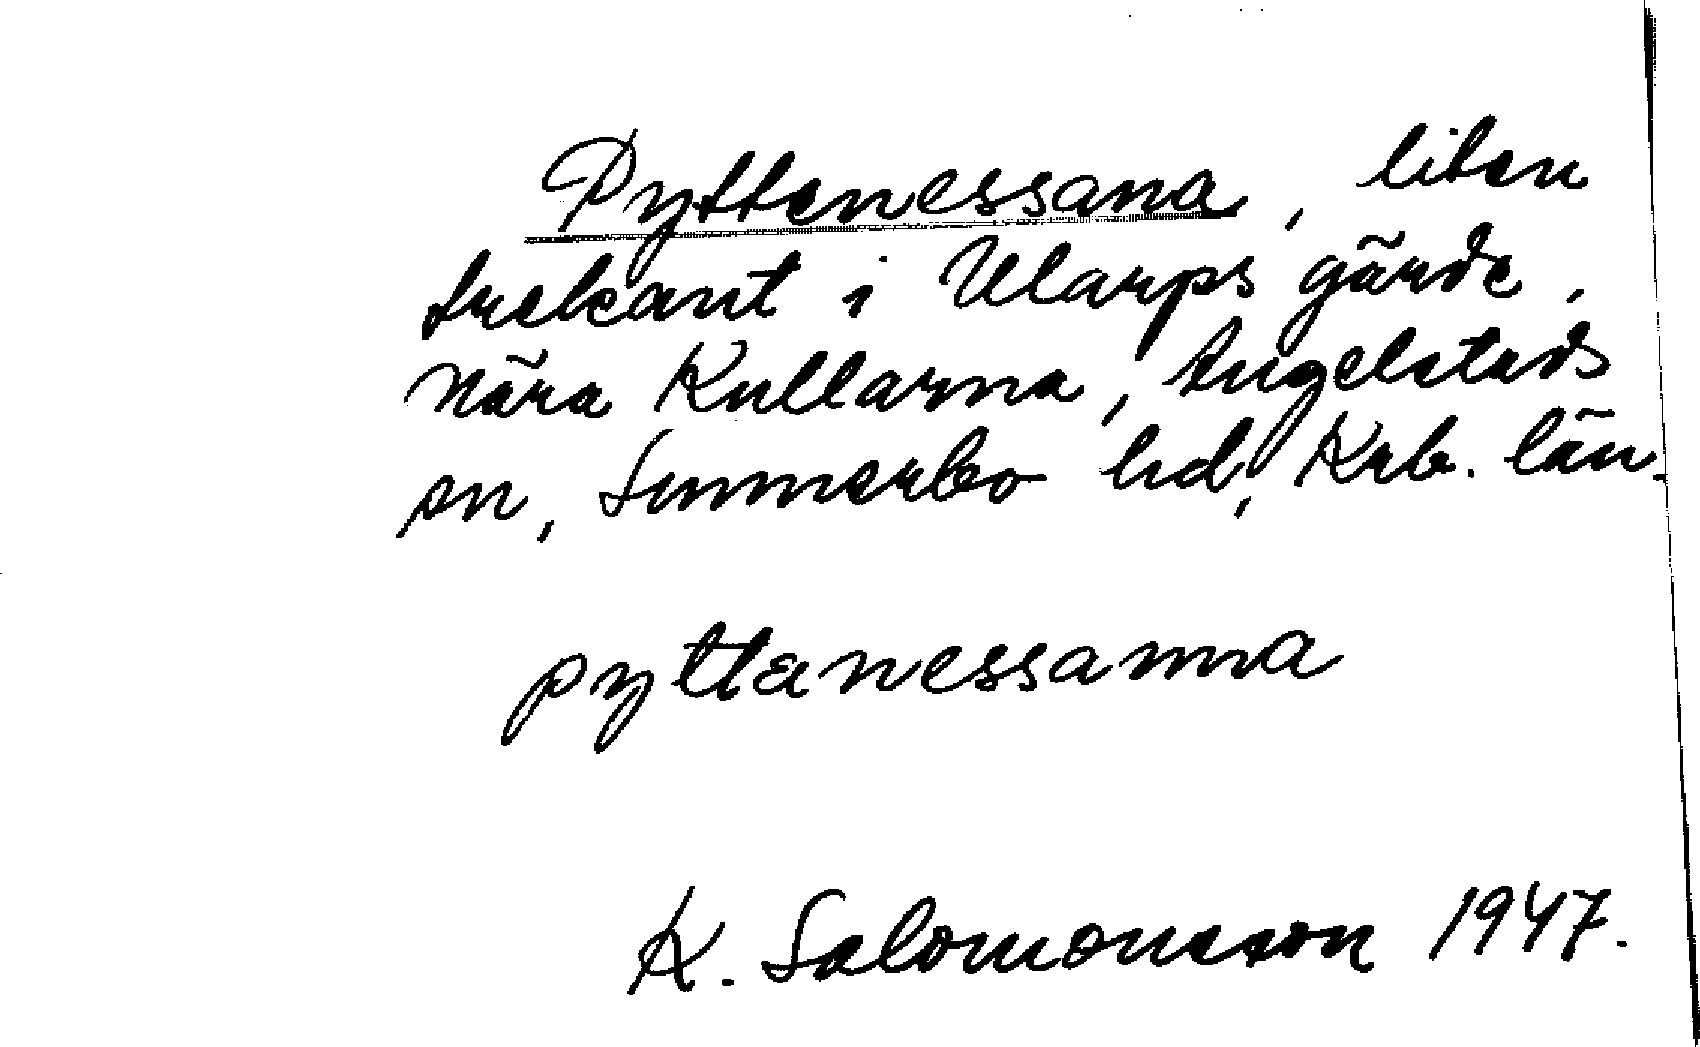 Pyttenessana, liten
trekant i Ularps gärde,
nära Kullarna, Angelstads
sn, Sunnerbo hd, Krb. län.
pyttanessanna
K. Salomonsson 1947.